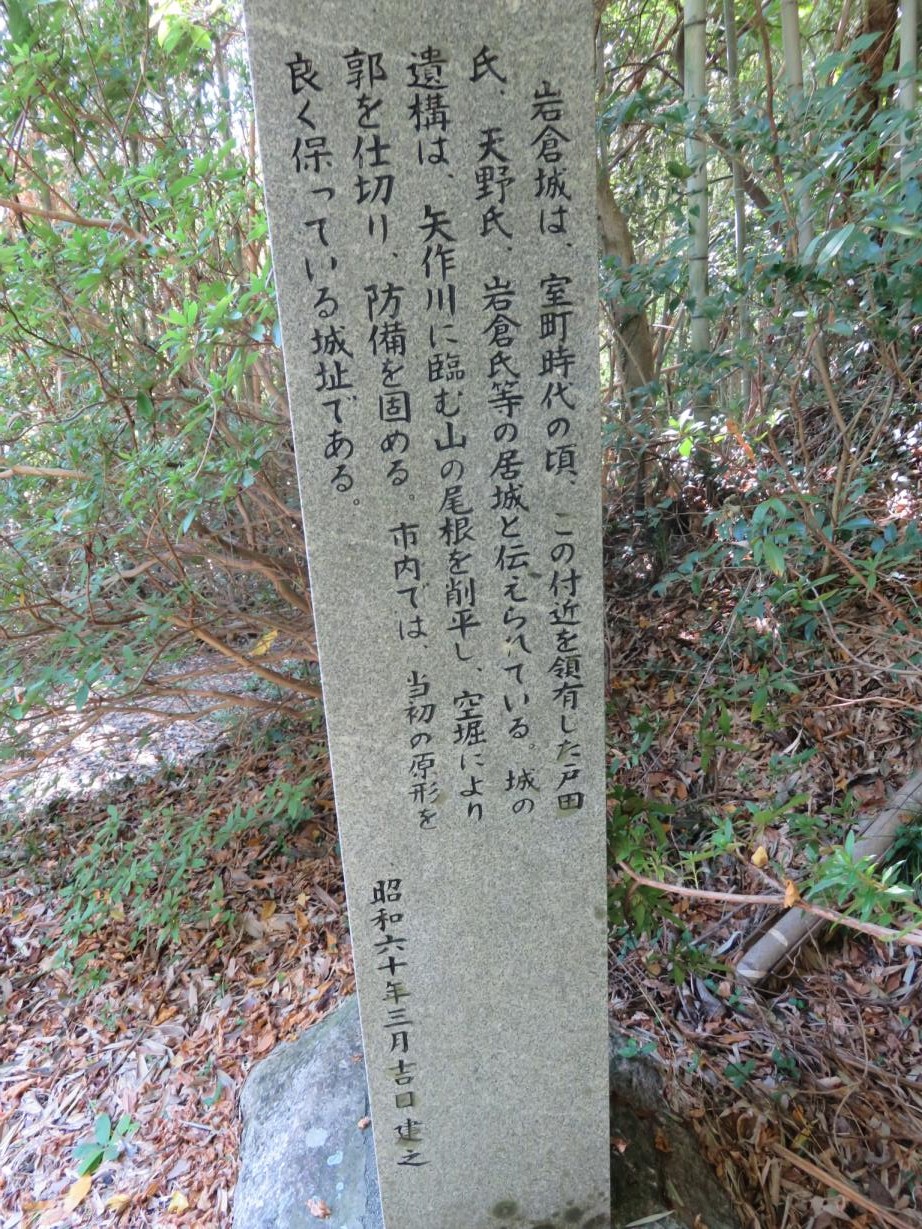 岩倉城は、室町時代の頃、この付近を領有した戸田
氏、天野氏、岩倉氏等の居城と伝えられている。城の
遺構は、矢作川に臨む山の尾根を削平し、空堀により
郭を仕切り、防備を固める。市内では、当初の原形を
良く保っている城址である。
昭和六十年三月吉日建之